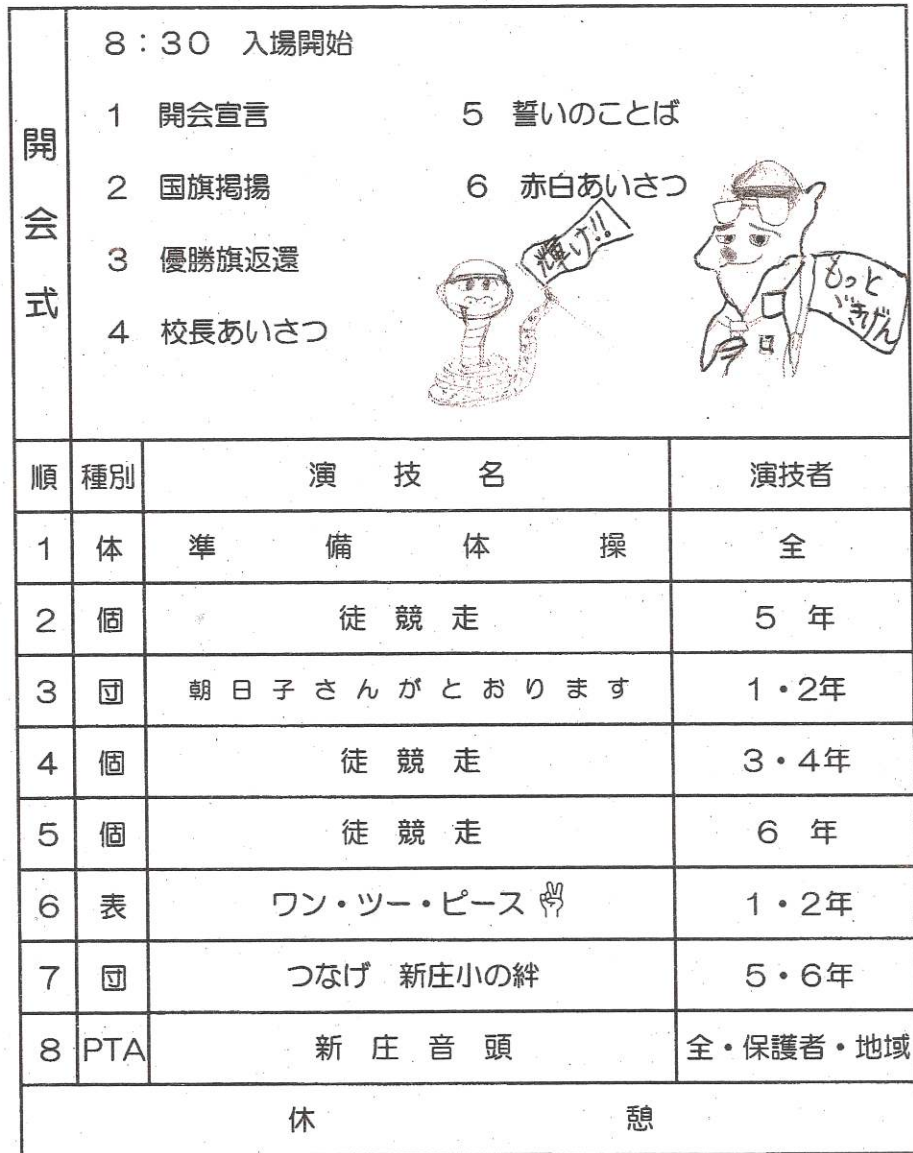 開会式
8:30 入場開始
1 開会宣言
2 国旗掲揚
3 優勝旗返還
4 校長あいさつ
5 誓いのことば
6 赤白あいさつ
輝け!!
もっと
ごきげん
順 種別 演技名 演技者
1 体 準備体操 全
2 個 徒競走 5年
3 団 朝日子さんがとおります 1・2年
4 個 徒競走 3・4年
5 個 徒競走 6年
6 表 ワン・ツー・ピース✌ 1・2年
7 団 つなげ 新庄小の絆 5・6年
8 PTA 新庄音頭 全・保護者・地域
休憩